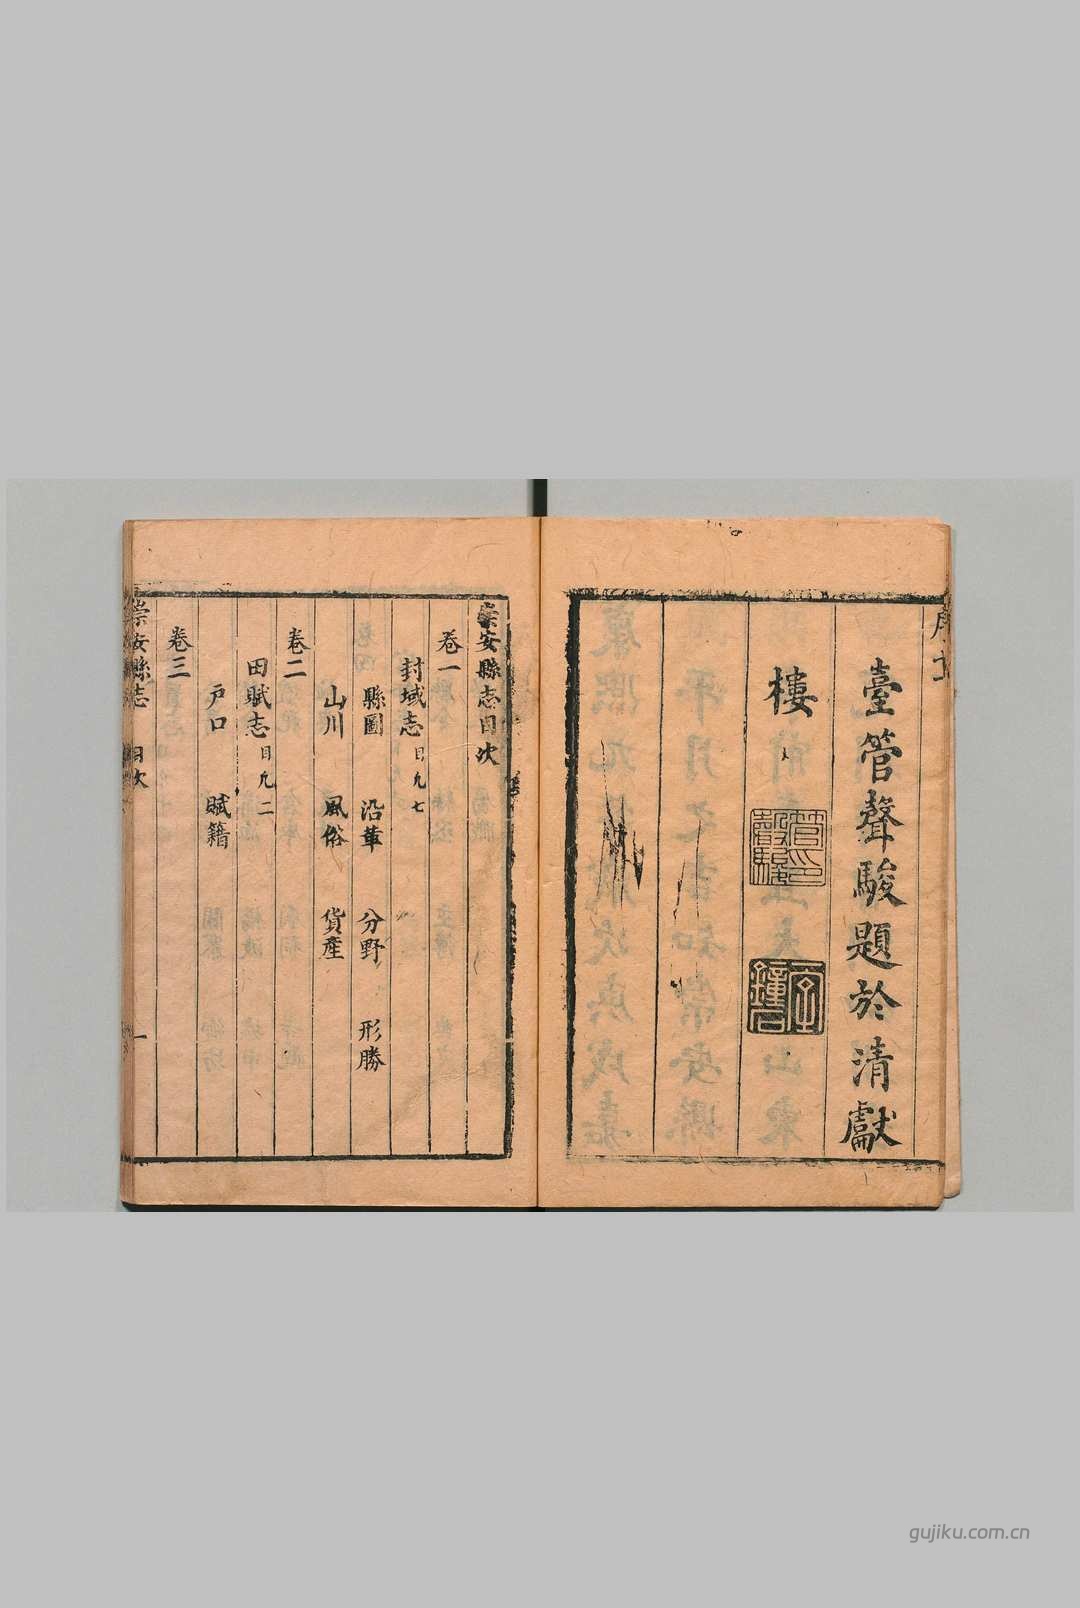 臺管聲駿題於清獻
樓
管聲駿印
崇安縣志目次
卷一
封域志目凡七
縣圖 沿革 分野 形勝
山川 風俗 貨產
卷二
田賦志目凡二
戶口 賦籍
卷三
崇安縣志 目次 一
gujiku.com.cn